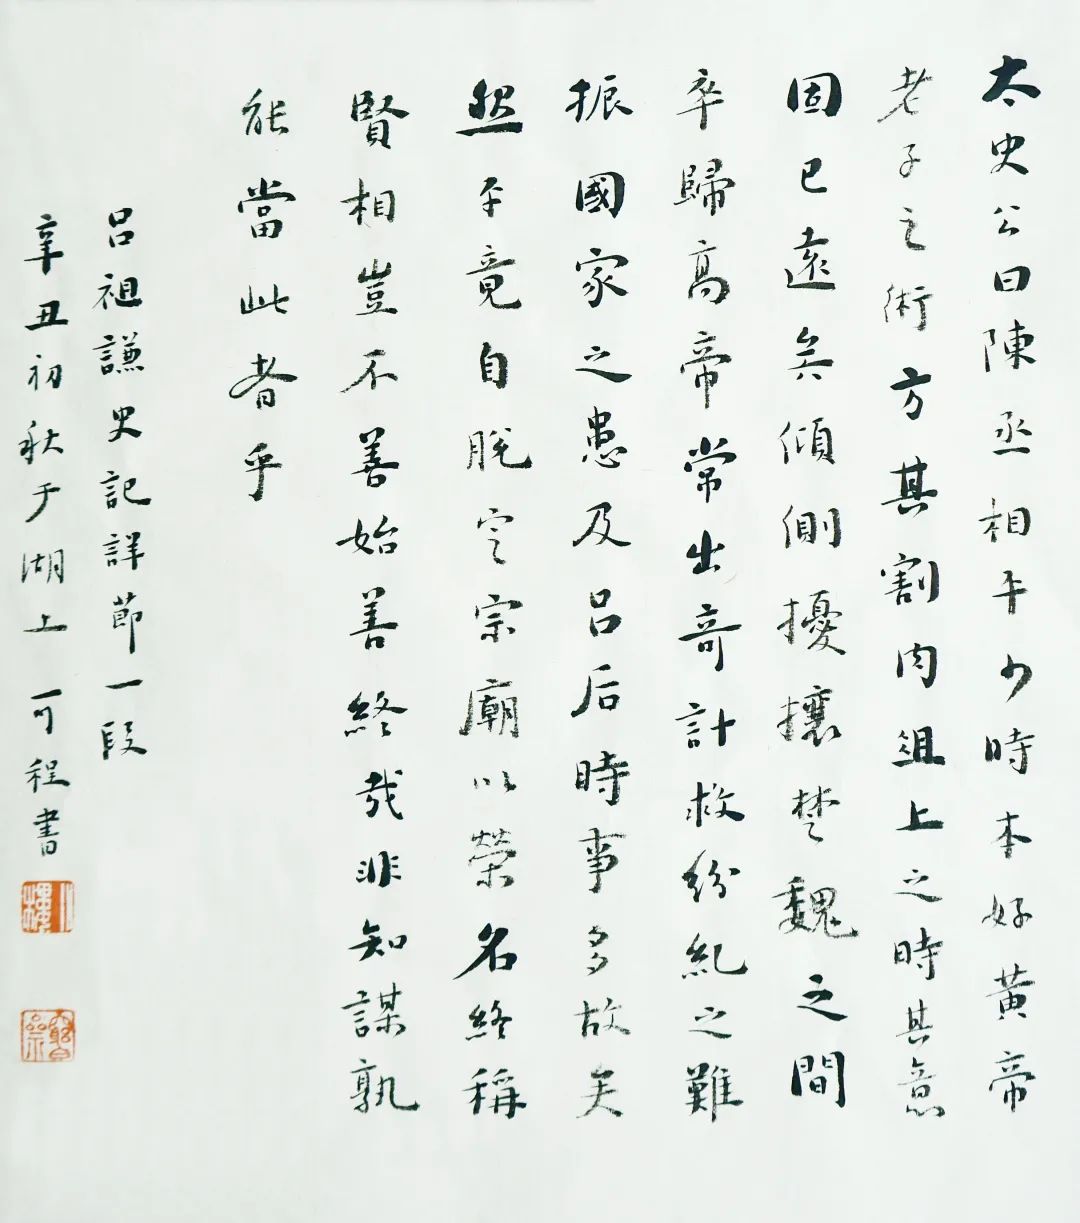 太史公曰陳丞相平少時本好黃帝
老子之術方其割肉俎上之時其意
固已遠矣傾側擾攘楚魏之間
卒歸高帝常出奇計救紛糾之難
振國家之患及呂后時事多故矣
然平竟自脫定宗廟以榮名終稱
賢相豈不善始善終哉非知謀孰
能當此者乎
呂祖謙史記詳節一段
辛丑初秋于湖上可程書